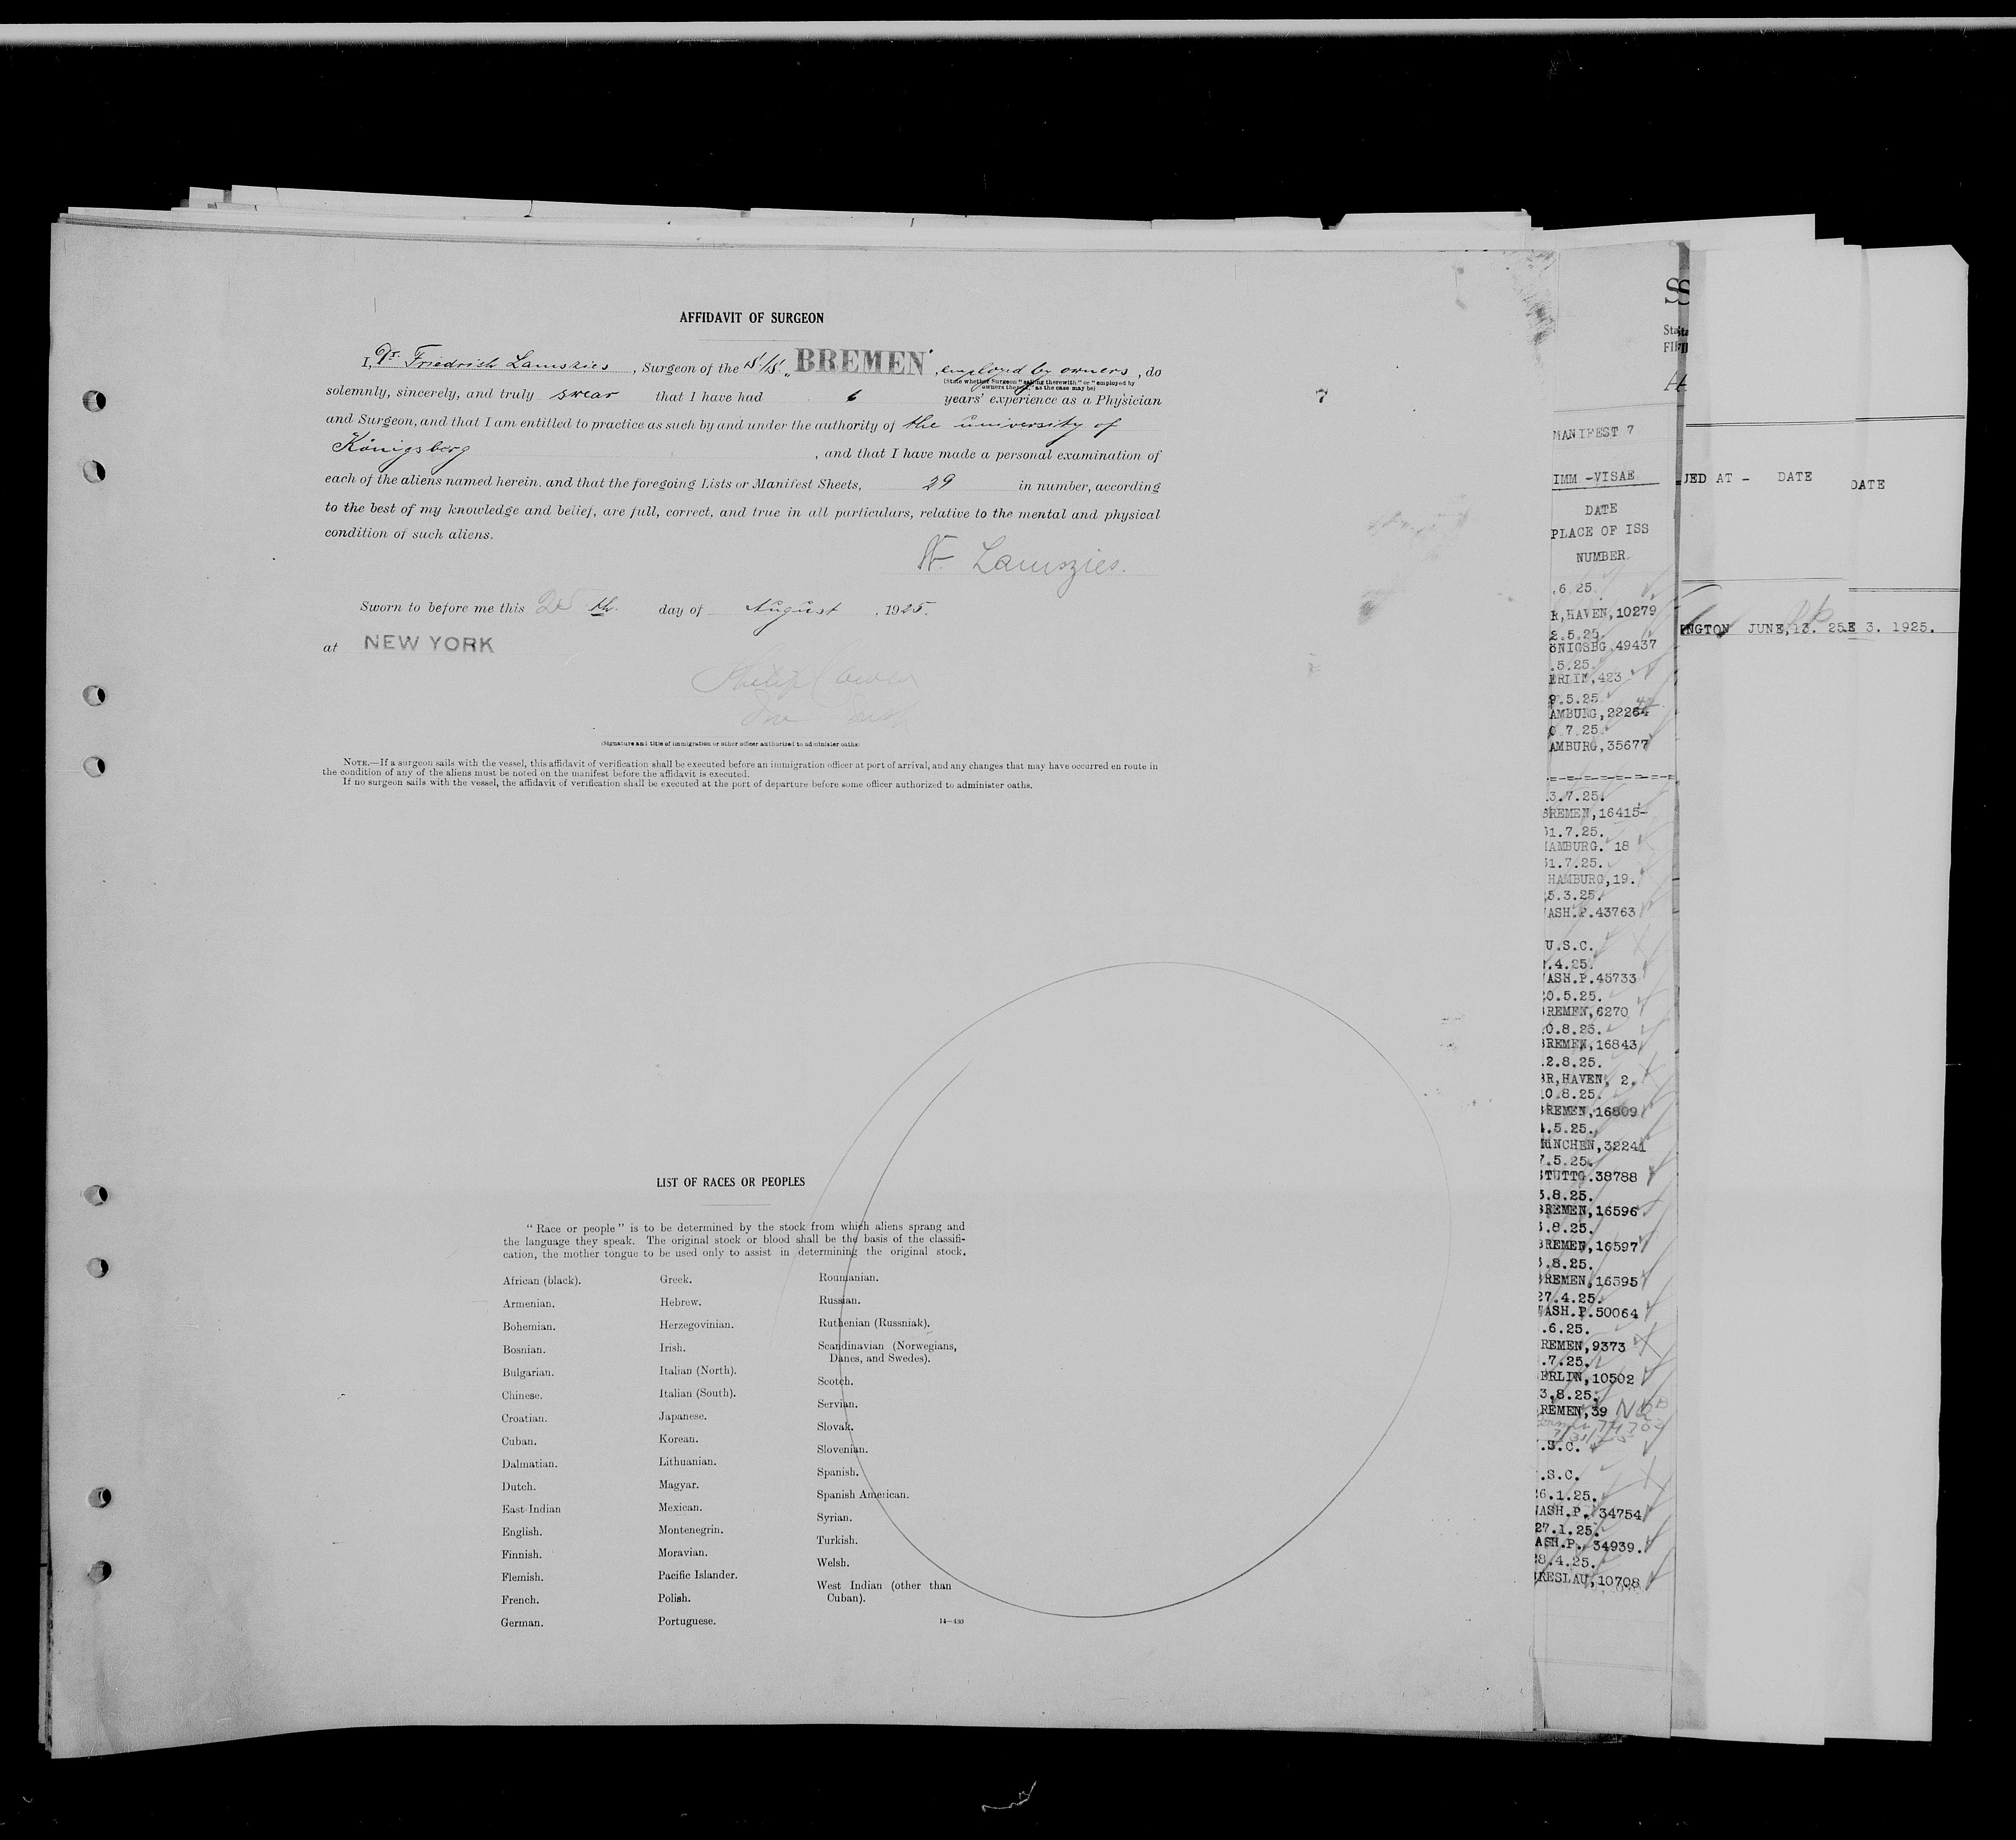 AFFIDAVIT OF SURGEON
I, Dr. Friedrich Lamszies, Surgeon of the S/S. „BREMEN", employed by owners, do
(State whether Surgeon "sailing therewith" or "employed by
owners thereof," as the case may be)
solemnly, sincerely, and truly swear that I have had 6 years' experience as a Physician
and Surgeon, and that I am entitled to practice as such by and under the authority of the university of
Königsberg, and that I have made a personal examination of
each of the aliens named herein. and that the foregoing Lists or Manifest Sheets, 29 in number, according
to the best of my knowledge and belief, are full, correct, and true in all particulars, relative to the mental and physical
condition of such aliens.
F. Lamszies.
Sworn to before me this 25 th. day of August, 1925.
at NEW YORK
(Signature and title of immigration or other officer authorized to administer oaths)
NOTE.—If a surgeon sails with the vessel, this affidavit of verification shall be executed before an immigration officer at port of arrival, and any changes that may have occurred en route in
the condition of any of the aliens must be noted on the manifest before the affidavit is executed.
If no surgeon sails with the vessel, the affidavit of verification shall be executed at the port of departure before some officer authorized to administer oaths.
7
LIST OF RACES OR PEOPLES
"Race or people" is to be determined by the stock from which aliens sprang and
the language they speak. The original stock or blood shall be the basis of the classifi-
cation, the mother tongue to be used only to assist in determining the original stock.
African (black).
Armenian.
Bohemian.
Bosnian.
Bulgarian.
Chinese.
Croatian.
Cuban.
Dalmatian.
Dutch.
East Indian
English.
Finnish.
Flemish.
French.
German.
Greek.
Hebrew.
Herzegovinian.
Irish.
Italian (North).
Italian (South).
Japanese.
Korean.
Lithuanian.
Magyar.
Mexican.
Montenegrin.
Moravian.
Pacific Islander.
Polish.
Portuguese.
Roumanian.
Russian.
Ruthenian (Russniak).
Scandinavian (Norwegians,
Danes, and Swedes).
Scotch.
Servian.
Slovak.
Slovenian.
Spanish.
Spanish American.
Syrian.
Turkish.
Welsh.
West Indian (other than
Cuban).
14—430
MANIFEST 7
IMM -VISAE
DATE
PLACE OF ISS
NUMBER.
.6.25.
R,HAVEN,10279
2.5.25.
ÖNIGSBG.49437
.5.25.
ERLIN,423
9.5.25.
AMBURG,22264
0.7.25.
AMBURG,35677
3.7.25.
BREMEN,16415-
31.7.25.
HAMBURG. 18
31.7.25.
HAMBURG,19.
5.3.25.
ASH.P.43763
U.S.C.
.4.25.
ASH.P.45733
20.5.25.
BREMEN,6270
0.8.25.
BREMEN,16843
2.8.25.
BR,HAVEN, 2.
0.8.25.
BREMEN,16809
.5.25.
MÜNCHEN,32241
7.5.25.
STUTTG.38788
3.8.25.
BREMEN,16596
.8.25.
BREMEN,16597
.8.25.
BREMEN,16595
27.4.25.
WASH.P.50064
.6.25.
REMEN,9373
.7.25.
ERLIN,10502
3.8.25.
REMEN,39
.S.C.
.S.C.
26.1.25.
WASH.P. 34754
27.1.25.
ASH.P. 34939.
28.4.25.
BRESLAU,10708
UED AT - DATE
DATE
NGTON JUNE,13. 25
E 3. 1925.